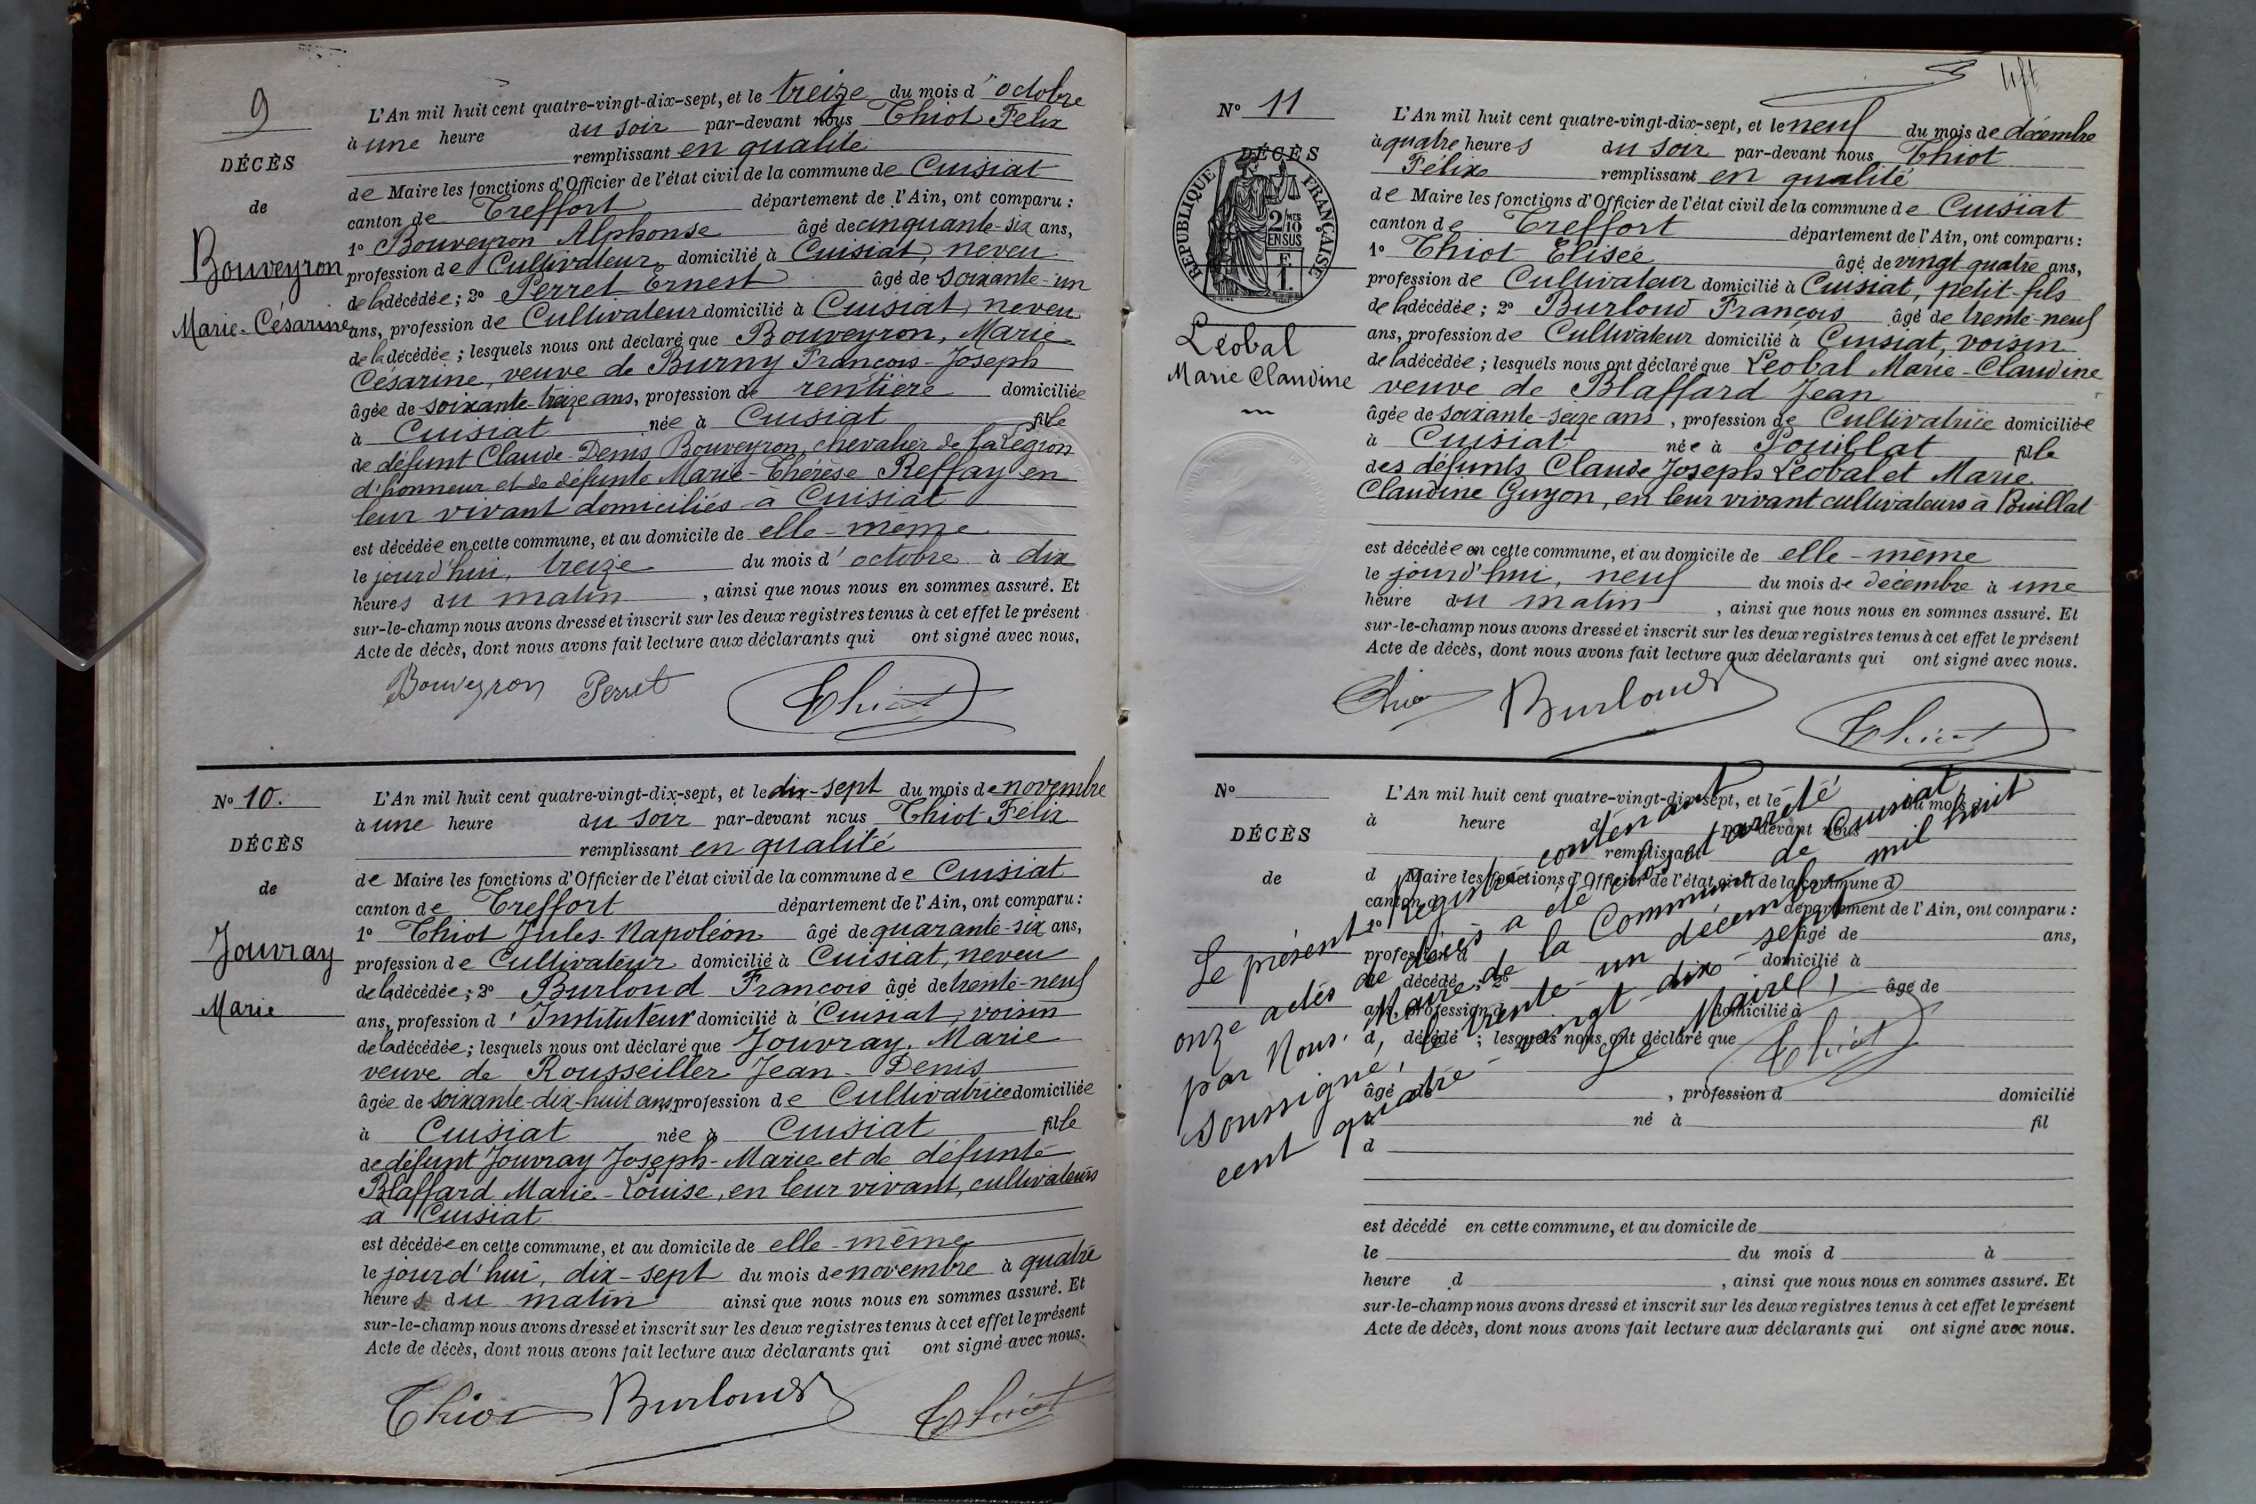 9
DÉCÈS
de
Bouveyron
Marie-Césarine
L'An mil huit cent quatre-vingt-dix-sept, et le treize du mois d'octobre
à une heure du soir par-devant nous Thiot Félix
remplissant en qualité
de Maire les fonctions d'Officier de l'état civil de la commune de Cuisiat
canton de Treffort département de l'Ain, ont comparu :
1º Bouveyron Alphonse âgé de cinquante-six ans,
profession de Cultivateur domicilié à Cuisiat, neveu
de la décédée ; 2º Perret Ernest âgé de soixante-un
ans, profession de Cultivateur domicilié à Cuisiat, neveu
de la décédée ; lesquels nous ont déclaré que Bouveyron, Marie
Césarine, veuve de Burny François-Joseph
âgée de soixante-treize ans, profession de rentière domiciliée
à Cuisiat née à Cuisiat fille
de défunt Claude-Denis Bouveyron, chevalier de la Légion
d'honneur et de défunte Marie-Thérèse Reffay en
leur vivant domiciliés à Cuisiat
est décédée en cette commune, et au domicile de elle-même
le jourd'hui, treize du mois d'octobre à dix
heures du matin, ainsi que nous nous en sommes assuré. Et
sur-le-champ nous avons dressé et inscrit sur les deux registres tenus à cet effet le présent
Acte de décès, dont nous avons fait lecture aux déclarants qui ont signé avec nous,
Bouveyron Perret Thiot
Nº 10.
DÉCÈS
de
Jouvray
Marie
L'An mil huit cent quatre-vingt-dix-sept, et le dix-sept du mois de novembre
à une heure du soir par-devant nous Thiot Félix
remplissant en qualité
de Maire les fonctions d'Officier de l'état civil de la commune de Cuisiat
canton de Treffort département de l'Ain, ont comparu :
1º Thiot Jules-Napoléon âgé de quarante-six ans,
profession de Cultivateur domicilié à Cuisiat, neveu
de la décédée ; 2º Burloud François âgé de trente-neuf
ans, profession d'Instituteur domicilié à Cuisiat, voisin
de la décédée ; lesquels nous ont déclaré que Jouvray, Marie
veuve de Rousseiller Jean-Denis
âgée de soixante-dix-huit ans, profession de Cultivatrice domiciliée
à Cuisiat née à Cuisiat fille
de défunt Jouvray Joseph-Marie et de défunte
Blaffard Marie-Louise, en leur vivant, cultivateurs
à Cuisiat
est décédée en cette commune, et au domicile de elle-même
le jourd'hui, dix-sept du mois de novembre à quatre
heures du matin ainsi que nous nous en sommes assuré. Et
sur-le-champ nous avons dressé et inscrit sur les deux registres tenus à cet effet le présent
Acte de décès, dont nous avons fait lecture aux déclarants qui ont signé avec nous.
Thiot Burloud Thiot
Nº 11
DÉCÈS
RÉPUBLIQUE FRANÇAISE
2/10 MES
EN SUS
E
1
Léobal
Marie Claudine
L'An mil huit cent quatre-vingt-dix-sept, et le neuf du mois de décembre
à quatre heures du soir par-devant nous Thiot
Félix remplissant en qualité
de Maire les fonctions d'Officier de l'état civil de la commune de Cuisiat
canton de Treffort département de l'Ain, ont comparu :
1º Thiot Elisée âgé de vingt quatre ans,
profession de Cultivateur domicilié à Cuisiat, petit-fils
de la décédée ; 2º Burloud François âgé de trente-neuf
ans, profession de Cultivateur domicilié à Cuisiat, voisin
de la décédée ; lesquels nous ont déclaré que Léobal Marie-Claudine
veuve de Blaffard Jean
âgée de soixante-seize ans, profession de Cultivatrice domiciliée
à Cuisiat née à Pouillat fille
des défunts Claude Joseph Léobal et Marie
Claudine Guyon, en leur vivant cultivateurs à Pouillat
est décédée en cette commune, et au domicile de elle-même
le jourd'hui, neuf du mois de décembre à une
heure du matin, ainsi que nous nous en sommes assuré. Et
sur-le-champ nous avons dressé et inscrit sur les deux registres tenus à cet effet le présent
Acte de décès, dont nous avons fait lecture aux déclarants qui ont signé avec nous.
Thiot Burloud Thiot
Nº
DÉCÈS
de
L'An mil huit cent quatre-vingt-dix-sept, et le du mois
à heure d par-devant nous
remplissant
d Maire les fonctions d'Officier de l'état civil de la commune d
canton d département de l'Ain, ont comparu :
1º âgé de ans,
profession d domicilié à
d décédé ; 2º âgé de
ans, profession d domicilié à
d décédé ; lesquels nous ont déclaré que
âgé de , profession d domicilié
à né à fil
d
est décédé en cette commune, et au domicile de
le du mois d à
heure d , ainsi que nous nous en sommes assuré. Et
sur-le-champ nous avons dressé et inscrit sur les deux registres tenus à cet effet le présent
Acte de décès, dont nous avons fait lecture aux déclarants qui ont signé avec nous.
Le présent Registre contenant
onze actes de décès a été clos et arrêté
par Nous, Maire de la Commune de Cuisiat
soussigné, le trente-un décembre mil huit
cent quatre-vingt-dix-sept
Le Maire,
Thiot